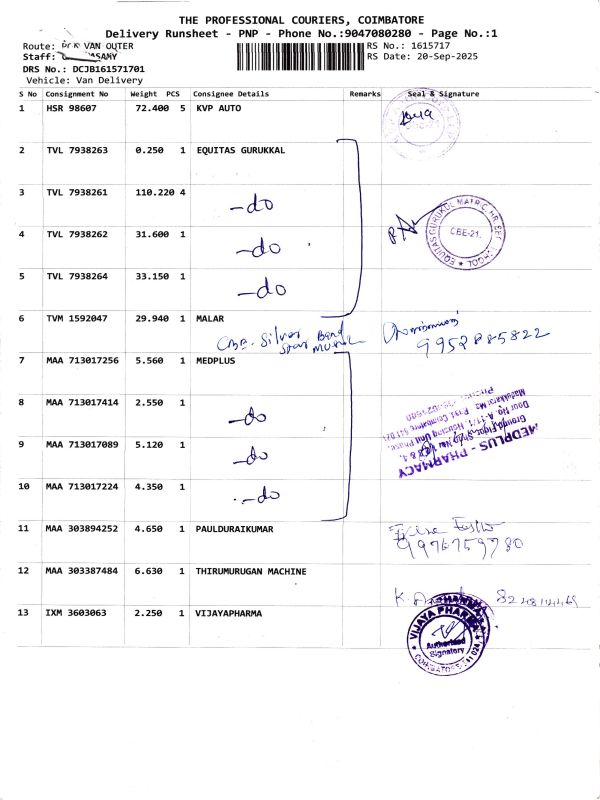 THE PROFESSIONAL COURIERS, COIMBATORE
Delivery Runsheet - PNP - Phone No.:9047080280 - Page No.:1
Route: VAN OUTER
RS No.: 1615717
Staff:
RS Date: 20-Sep-2025
DRS No.: DCJB161571701
Vehicle: Van Delivery
S No Consignment No Weight PCS Consignee Details Remarks Seal & Signature
1 HSR 98607 72.400 5 KVP AUTO
2 TVL 7938263 0.250 1 EQUITAS GURUKKAL
3 TVL 7938261 110.220 4 -do
4 TVL 7938262 31.600 1 -do
EQUITAS GURUKUL MATRIC. HR. SEC. SCHOOL
CBE-21.
5 TVL 7938264 33.150 1 -do
6 TVM 1592047 29.940 1 MALAR
CBE. Silver
Star Band
9952885822
7 MAA 713017256 5.560 1 MEDPLUS
8 MAA 713017414 2.550 1 -do
9 MAA 713017089 5.120 1 -do
MEDPLUS - PHARMACY
10 MAA 713017224 4.350 1 -do
11 MAA 303894252 4.650 1 PAULDURAIKUMAR
9976759780
12 MAA 303387484 6.630 1 THIRUMURUGAN MACHINE
K.
13 IXM 3603063 2.250 1 VIJAYAPHARMA
VIJAYA PHARMA
Authorised
Signatory